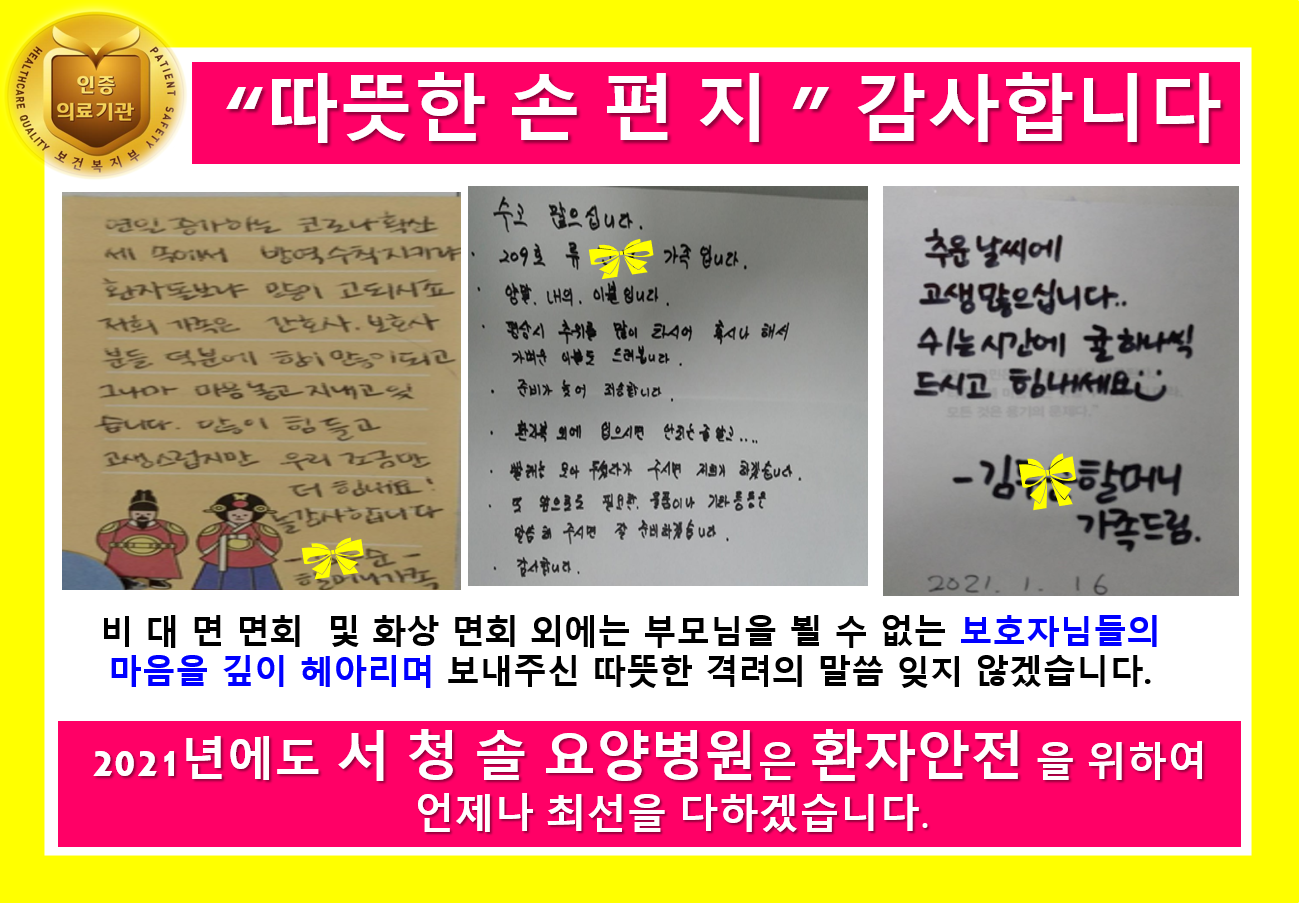 인증
의료기관
HEALTHCARE QUALITY
PATIENT SAFETY
보건복지부
“따뜻한 손 편 지 ” 감사합니다
연일 증가하는 코로나 확산
세 속에서 방역수칙 지키랴
환자 돌보랴 많이 고되시죠
저희 가족은 간호사. 보호사
분들 덕분에 힘이 많이 되고
그나마 마음 놓고 지내고 있
습니다. 많이 힘들고
고생스럽지만 우리 조금만
더 힘내요!
늘 감사합니다
순 -
할머니 가족
수고 많으십니다.
209호 류 가족 입니다.
양말, 내의, 이불 입니다.
평상시 추위를 많이 타시어 혹시나 해서
가벼운 이불도 드려봅니다.
준비가 늦어 죄송합니다.
환자복 외에 입으시면 안되는줄 알고....
빨래는 모아 두셨다가 주시면 저희가 하겠습니다.
또 앞으로도 필요한 물품이나 기타등등은
말씀 해 주시면 잘 준비하겠습니다.
감사합니다.
추운 날씨에
고생 많으십니다..
쉬는 시간에 귤 하나씩
드시고 힘내세요
- 김 할머니
가족드림.
2021. 1. 16
비 대 면 면회 및 화상 면회 외에는 부모님을 뵐 수 없는 보호자님들의
마음을 깊이 헤아리며 보내주신 따뜻한 격려의 말씀 잊지 않겠습니다.
2021년에도 서 청 솔 요양병원은 환자안전 을 위하여
언제나 최선을 다하겠습니다.